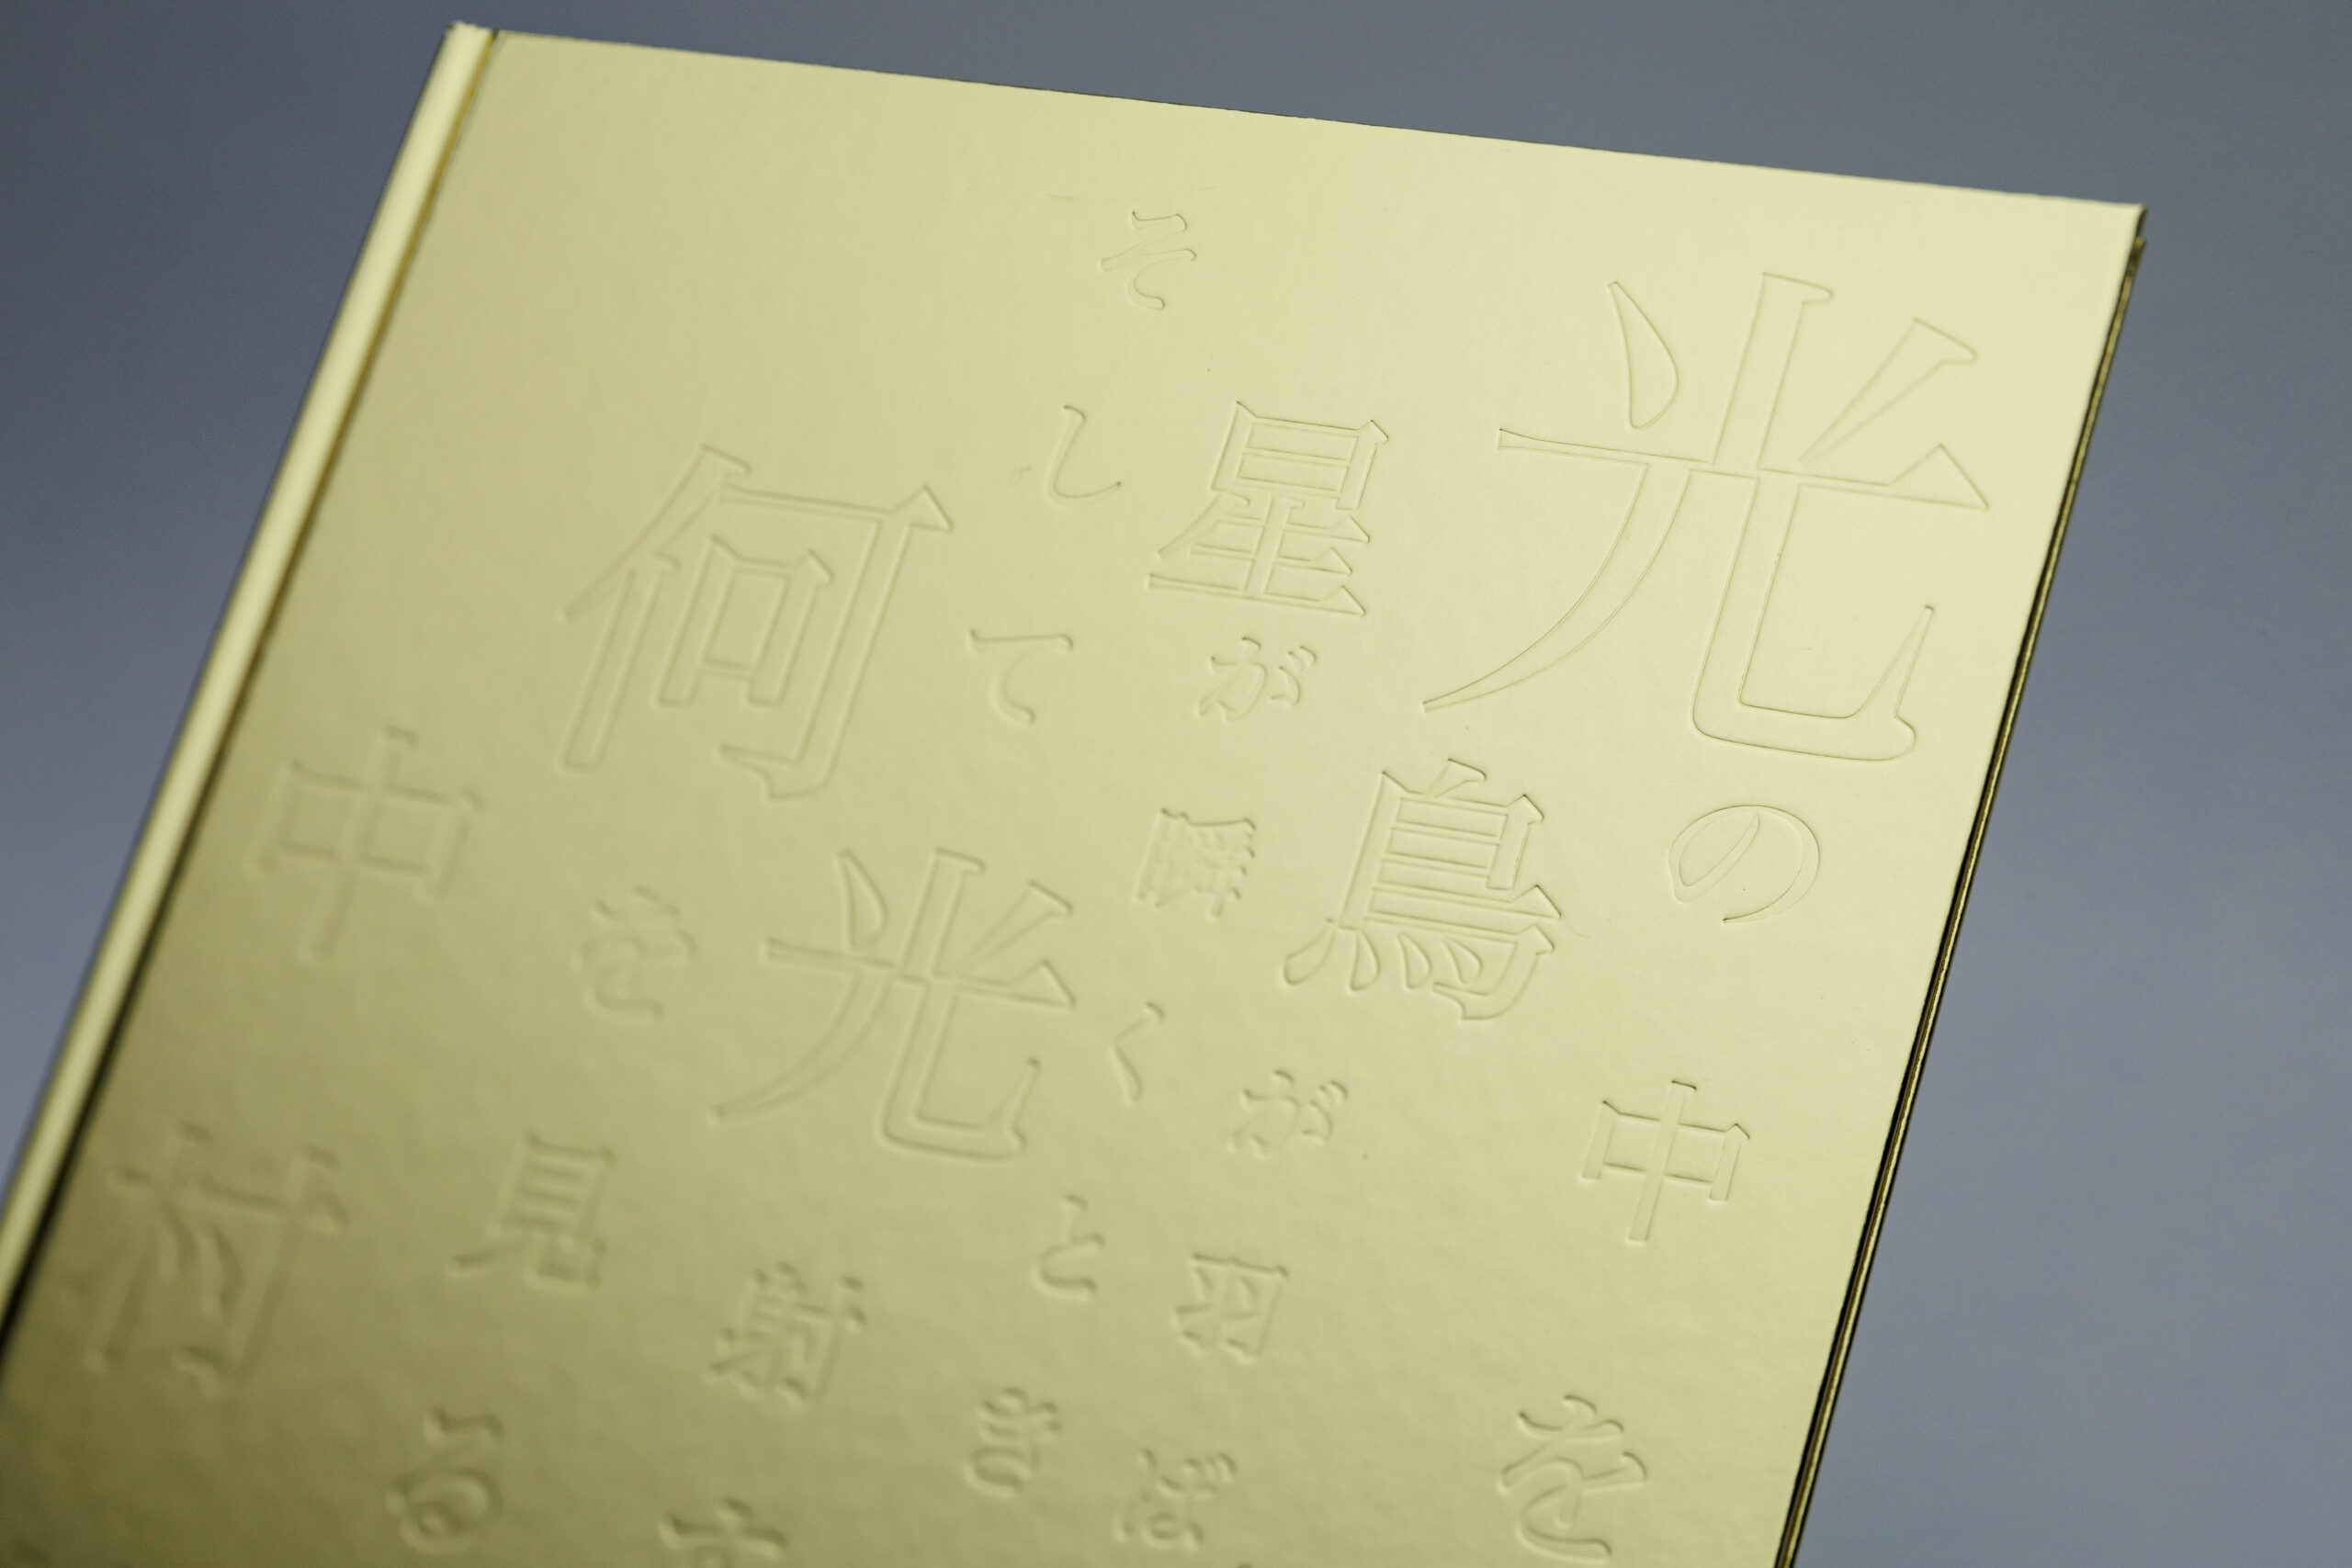 光の中を
鳥が羽ば
星が瞬くとき
そして光射す
何を見る
中村